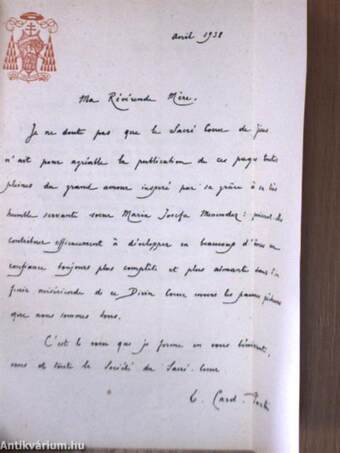 avril 1938
Ma Révérende Mère.
Je ne doute pas que le Sacré Coeur de Jésus
n'ait pour agréable la publication de ces pages toutes
pleines du grand amour inspiré par sa grâce à sa très
humble servante soeur Maria Josefa Menendez : puissent-elles
contribuer efficacement à développer en beaucoup d'âmes une
confiance toujours plus complète et plus aimante dans l'in
finie miséricorde de ce Divin Coeur envers les pauvres pécheurs
que nous sommes tous.
C'est le voeu que je forme en vous bénissant,
vous et toute la Société du Sacré-Coeur.
E. Card. Pacelli
Antikvárium.hu